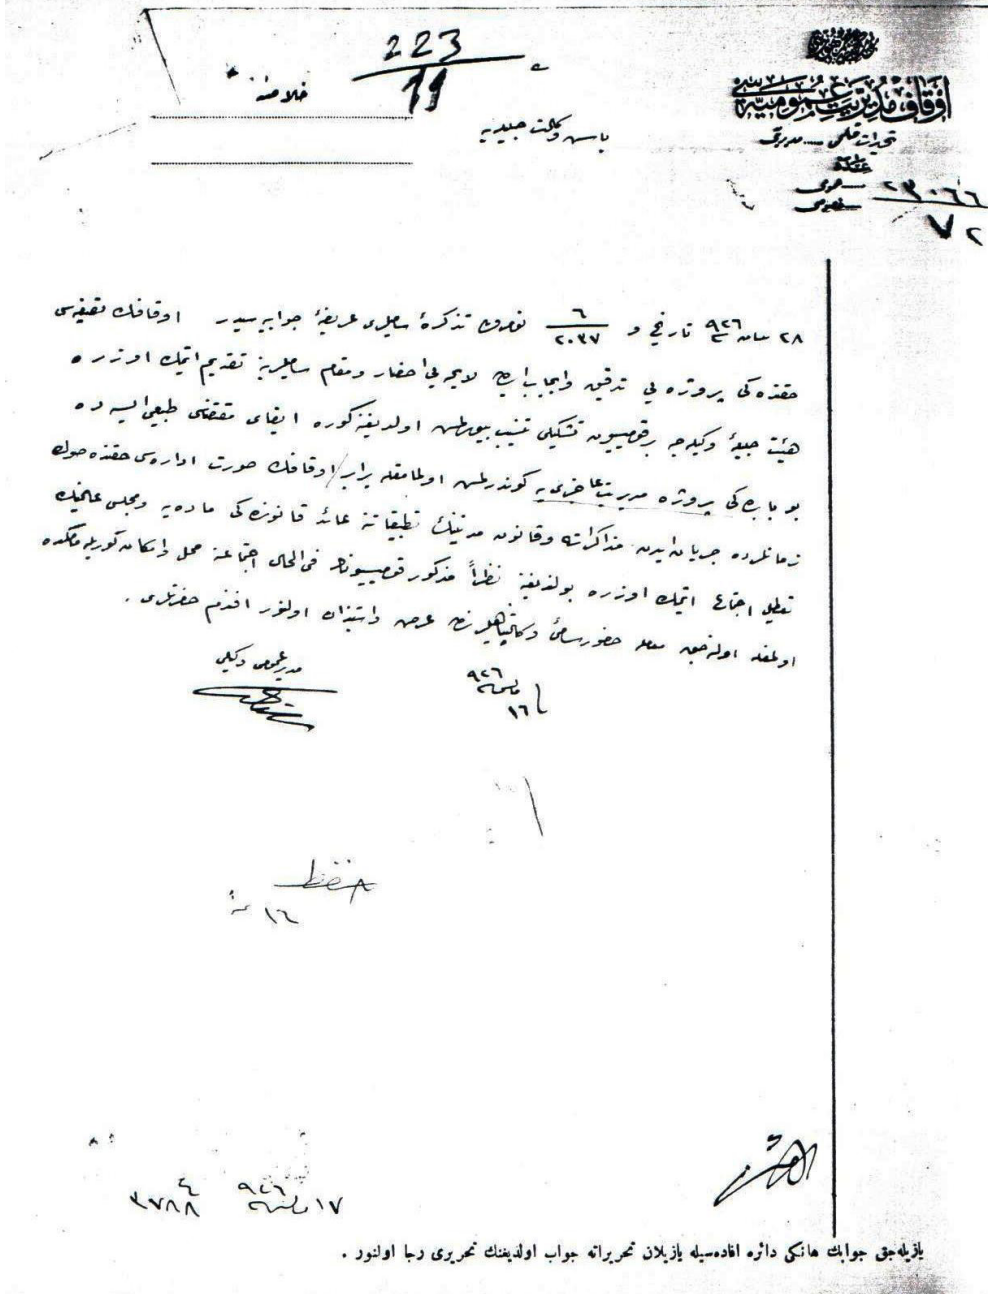 223
11
خلاصه
اوقاف مديريت عموميه سى
تحريرات قلمى مديريتى
عدد
عمومى ٢٣٠٦٦
خصوصى ٧٢
باش وكالت جليله يه
٢٨ نيسان ٩٢٦ تاريخ و ٦/٢٠٣٧ نومرولى تذكرۀ ساميلرى عريضۀ جوابيه سيدر اوقافك تصفيه سى
حقنده كى پروژه يى تدقيق و ايجاب ايدن لايحه يى احضار و مقام ساميلرينه تقديم ايتمك اوزره
هيئت جليلۀ وكيله جه بر قوميسيون تشكيلى تنسيب بيورلمش اولديغنه كوره ايفاى مقتضى طبيعى ايسه ده
بو بابده كى پروژه مديريت عاجزى يه كوندرلمش اولمامقله برابر اوقافك صورت اداره سى حقنده صوك
زمانلرده جريان ايدن مذاكراته و قانون مدنينك تطبيقاتنه عائد قانونده كى ماده يه و مجلس عالينك
تعطيل اجتماع ايتمك اوزره بولنديغنه نظراً مذكور قوميسيونك فى الحال اجتماعنه محل و امكان كوريله مامكده
اولمغله اوله جق معامله حضور سامئ وكالتپناهيلرندن عرض و استيذان اولنور افندم حضرتلرى .
١٦ مايس ٩٢٦
مدير عمومى وكيلى
حفظ
١٦
١٧ مايس ٩٢٦
٤
٣٧٨٨
يازيله جق جوابك هانكى دائره افاده سيله يازيلان تحريراته جواب اولديغنك تحريرى رجا اولنور .